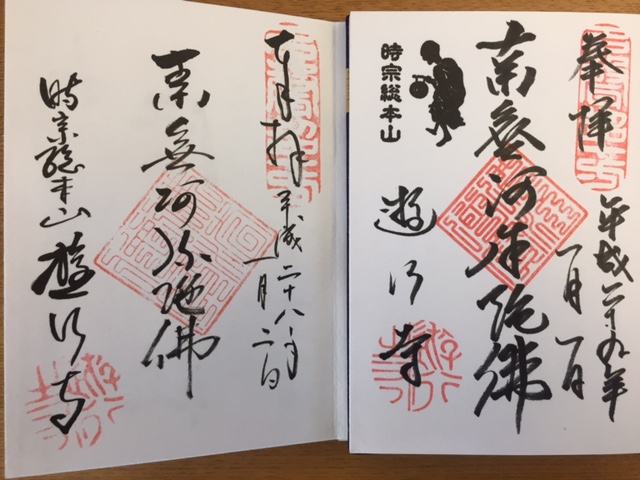 奉拝
平成二十九年
一月一日
南無阿弥陀佛
時宗総本山
遊行寺
奉拝
平成二十八年
一月二日
南無阿弥陀佛
時宗総本山 遊行寺